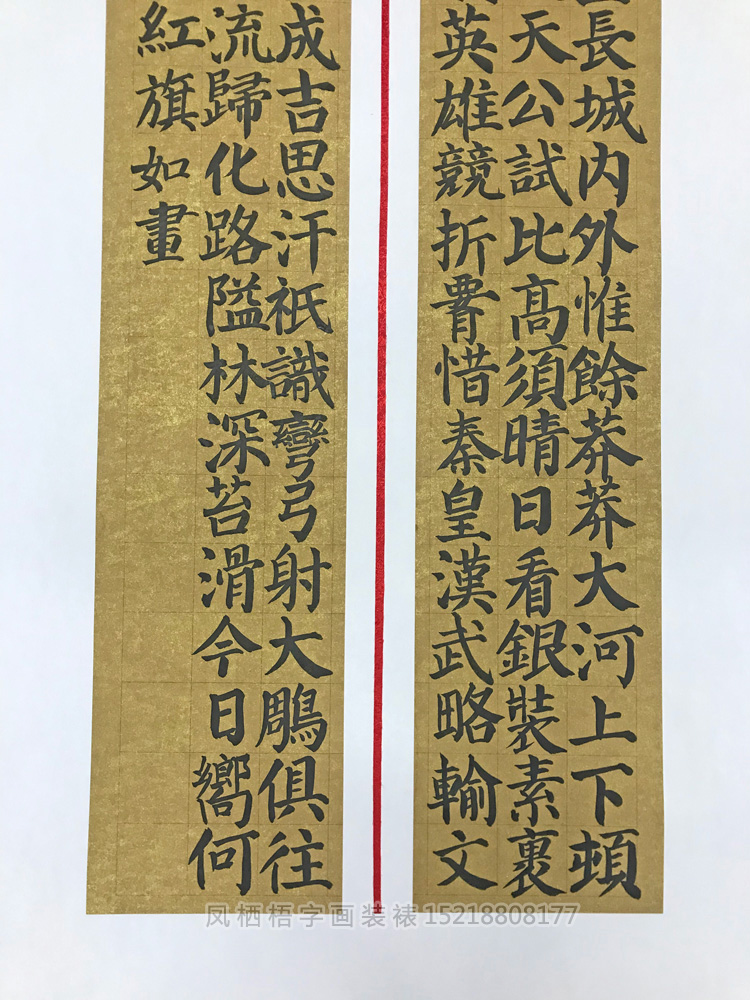 長城内外惟餘莽莽大河上下頓
天公試比高須晴日看銀裝素裹
英雄競折腰惜秦皇漢武略輸文
成吉思汗祗識彎弓射大鵰俱往
流歸化路隘林深苔滑今日嚮何
紅旗如畫
凤栖梧字画装裱15218808177